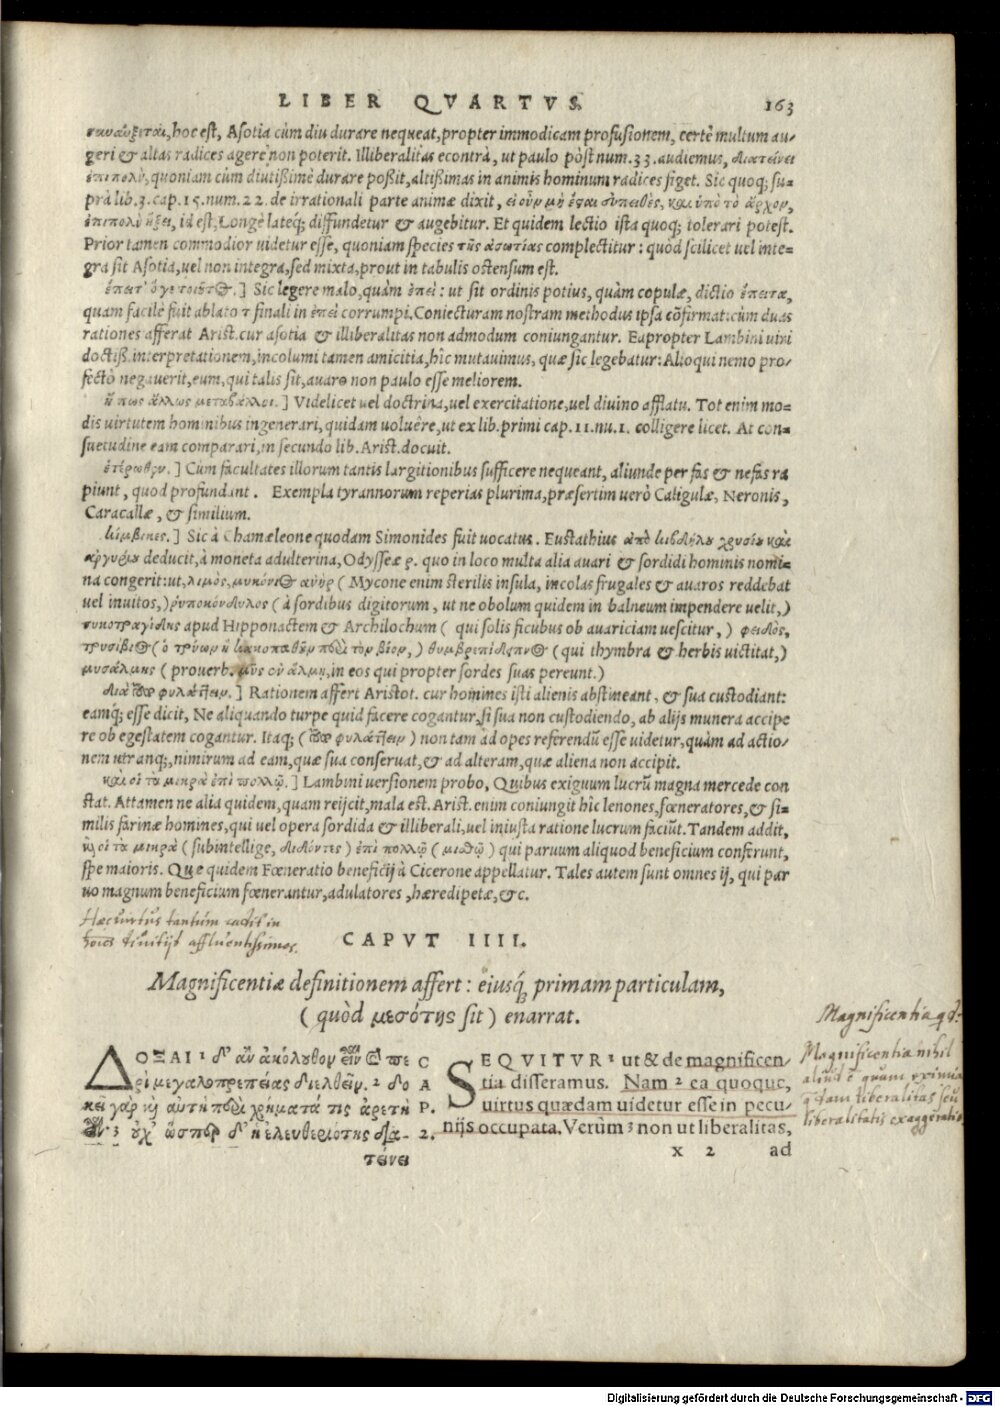 LIBER QVARTVS. 163
hoc est, Asotia cùm diu durare nequeat, propter immodicam profusionem, certè multum au-
geri & altas radices agere non poterit. Illiberalitas econtrà, ut paulo pòst num. 33. audiemus, διατείνει
ἐπιπολὺ, quoniam cùm diutissimè durare possit, altissimas in animis hominum radices figet. Sic quoq; su-
prà lib. 3. cap. 15. num. 22. de irrationali parte animæ dixit, εἰ οὖν μὴ ἔσαι ἐυπειθὲς, καὶ ὑπὸ τὸ ἄρχον,
ἐπιπολὺ ἥξει, id est, Longè lateq́; diffundetur & augebitur. Et quidem lectio ista quoq; tolerari potest.
Prior tamen commodior uidetur esse, quoniam species τῆς ἀσωτίας complectitur: quòd scilicet uel inte=
gra sit Asotia, uel non integra, sed mixta, prout in tabulis ostensum est.
ἔπειτ' ὅγε τοιοῦτος.] Sic legere malo, quàm ἐπεὶ: ut sit ordinis potius, quàm copulæ, dictio ἔπειτα,
quam facilè fuit ablato τ finali in ἐπεὶ corrumpi. Coniecturam nostram methodus ipsa cõfirmat: cùm duas
rationes afferat Arist. cur asotia & illiberalitas non admodum coniungantur. Eapropter Lambini uiri
doctiß. interpretationem, incolumi tamen amicitia, hîc mutauimus, quæ sic legebatur: Alioqui nemo pro-
fectò negauerit, eum, qui talis sit, auaro non paulo esse meliorem.
ἤ πως ἄλλως μεταβάλλοι.] Videlicet uel doctrina, uel exercitatione, uel diuino afflatu. Tot enim mo=
dis uirtutem hominibus ingenerari, quidam uoluêre, ut ex lib. primi cap. 11. nu. 1. colligere licet. At con=
suetudine eam comparari, in secundo lib. Arist. docuit.
ἑτέρωθεν.] Cùm facultates illorum tantis largitionibus sufficere nequeant, aliunde per fas & nefas ra
piunt, quod profundant. Exempla tyrannorum reperias plurima, præsertim uerò Caligulæ, Neronis,
Caracallæ, & similium.
κίμβικες.] Sic à Chamæleone quodam Simonides fuit uocatus. Eustathius ἀπὸ κιβδήλου χρυσίου καὶ
ἀργυρίου deducit, à moneta adulterina, Odysseæ ρ. quo in loco multa alia auari & sordidi hominis nomi=
na congerit: ut, λιμὸς, μυκόνιος ἀνὴρ (Mycone enim sterilis insula, incolas frugales & auaros reddebat
uel inuitos,) ῥυποκόνδυλος (à sordibus digitorum, ut ne obolum quidem in balneum impendere uelit,)
συκοτραγίδης apud Hipponactem & Archilochum (qui solis ficubus ob auariciam uescitur,) φειδὸς,
τρυσίβιος (ὁ τρύων κὶ κακοπαθῶν περὶ τὸν βίον,) θυμβρεπίδειπνος (qui thymbra & herbis uictitat,)
μυσάλμης (prouerb. μῦς ἐν ἅλμῃ, in eos qui propter sordes suas pereunt.)
διὰ τοῦτο φυλάττειν.] Rationem affert Aristot. cur homines isti alienis abstineant, & sua custodiant:
eamq́; esse dicit, Ne aliquando turpe quid facere cogantur, si sua non custodiendo, ab alijs munera accipe
re ob egestatem cogantur. Itaq; (τοῦτο φυλάττειν) non tam ad opes referendũ esse uidetur, quàm ad actio-
nem utranq;, nimirum ad eam, quæ sua conseruat, & ad alteram, quæ aliena non accipit.
καὶ οἱ τὰ μικρὰ ἐπὶ πολλῷ.] Lambini uersionem probo, Quibus exiguum lucrũ magna mercede con
stat. Attamen ne alia quidem, quam reijcit, mala est. Arist. enim coniungit hîc lenones, fœneratores, & si=
milis farinæ homines, qui uel opera sordida & illiberali, uel iniusta ratione lucrum faciũt. Tandem addit,
κὶ οἱ τὰ μικρὰ (subintellige, διδόντες) ἐπὶ πολλῷ (μισθῷ) qui paruum aliquod beneficium conferunt,
spe maioris. Quæ quidem Fœneratio beneficij à Cicerone appellatur. Tales autem sunt omnes ij, qui par
uo magnum beneficium fœnerantur, adulatores, hæredipetæ, &c.
Hæc uirtus tantùm cadit in
affluentissimos.
CAPVT IIII.
Magnificentiæ definitionem affert: eiusq́; primam particulam,
(quòd μεσότης sit) enarrat.
Magnificentia
ΔΟΞΑΙ ¹ δ' ἂν ἀκόλουθον εἶναι καὶ πε C
ρὶ μεγαλοπρεπείας διελθεῖν. ² δο A
κεῖ γὰρ κὶ αὐτὴ περὶ χρήματά τις ἀρετὴ P.
εἶναι. ³ οὐχ' ὥσπερ δ' ἡ ἐλευθεριότης δια- 2.
τείνει
SEQVITVR ¹ ut & de magnificen-
tia disseramus. Nam ² ea quoque,
uirtus quædam uidetur esse in pecu-
nijs occupata. Verùm ³ non ut liberalitas,
x 2 ad
Magnificentia nihil
aliud ẽ quàm eximia
quædam liberalitas seu
liberalitatis exaggeratio
Digitalisierung gefördert durch die Deutsche Forschungsgemeinschaft - DFG